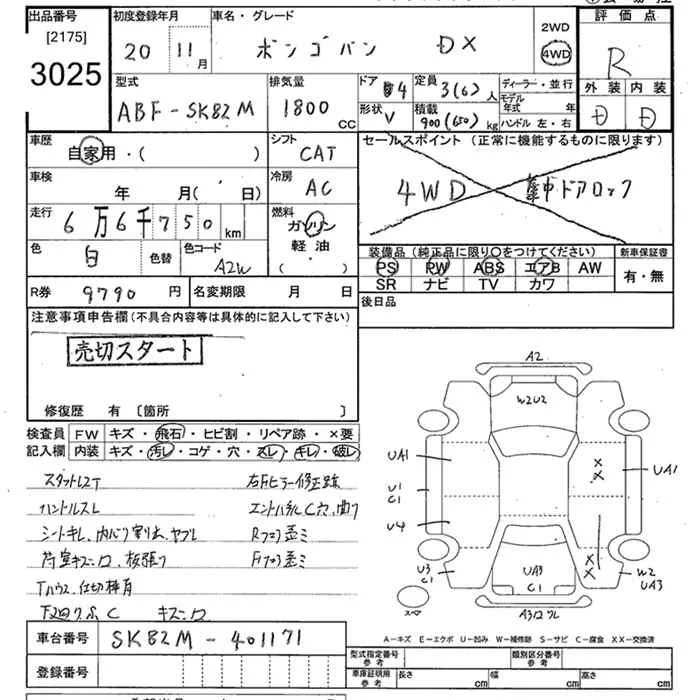 出品番号 初度登録年月 車名・グレード 2WD 評価点
[2175]
3025 20 11月 ボンゴバン DX 4WD R
外装 内装
D D
型式 排気量 ドア 4 定員 3(6)人 ディーラー・並行
モデル年式 年
ABF-SK82M 1800 CC 形状 V 積載 900(650)kg ハンドル 左・右
車歴 シフト セールスポイント (正常に機能するものに限ります)
自家用・( ) CAT
車検 冷房 4WD 集中ドアロック
年 月( 日) AC
走行 燃料
6万6千750km ガソリン
軽油
( )
色 色替 色コード 装備品 (純正品に限り○をつけてください) 新車保証書
白 A2W PS PW ABS エアB AW 有・無
SR ナビ TV カワ
R券 9790円 名変期限 月 日 後日品
注意事項申告欄(不具合内容等は具体的に記入して下さい)
売切スタート
修復歴 有 〔箇所 〕
検査員 FW キズ・飛石・ヒビ割・リペア跡・×要
記入欄 内装 キズ・汚レ・コゲ・穴・スレ・キレ・破レ
右Fピラー修正跡
ハンドルスレ
シートキレ
Rフロア歪ミ
Fフロア歪ミ
キズ凹
車台番号 SK82M-401171
登録番号
A2
W2U2
UA1 UA1
U1
C1
U4
X
X
X
X
U3
C1
W2
UA3
UA3
C1
A-キズ E-エクボ U-凹み W-補修跡 S-サビ C-腐食 XX-交換済
型式指定番号 参考 類別区分番号 参考
車庫証明用 参考 長さ cm 幅 cm 高さ cm